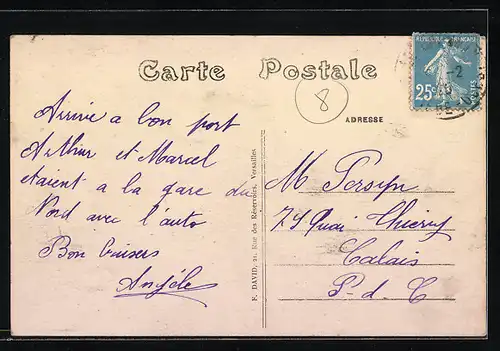 Carte Postale
8
ADRESSE
REPUBLIQUE FRANÇAISE
25c
POSTES
Arrivée a bon port
Arthur et Marcel
etaient a la gare du
Nord avec l'auto
Bon baisers
Angèle
F. DAVID, 21, Rue des Réservoirs, Versailles
M Persyn
Quai
Calais
P-d-C